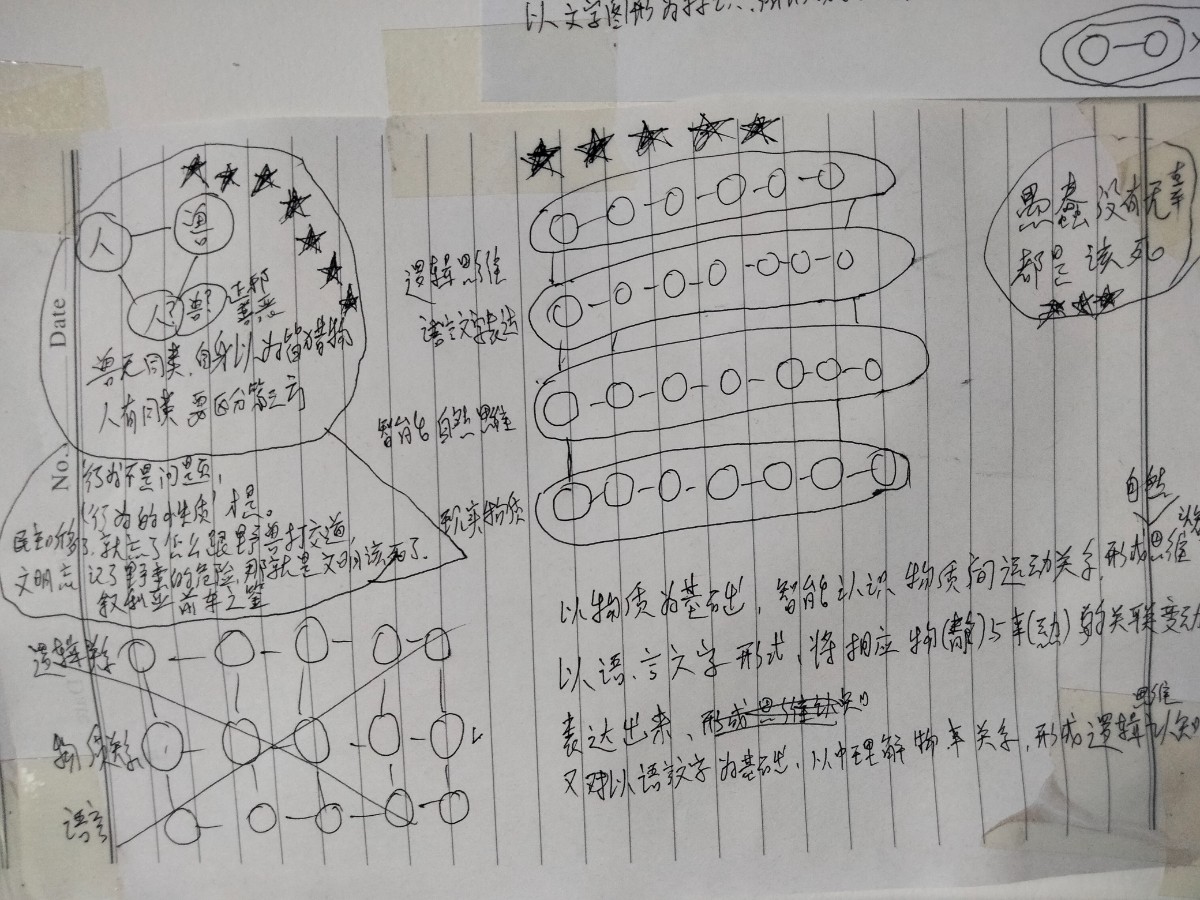 以文字图形为
人
兽
人?
兽?
正邪
善恶
兽无同类,自身以外皆猎物
人有同类 要区分
Date
No.
行为不是问题,
行为的"性质"才是。
民主了,就忘了怎么跟野兽打交道,
文明忘记了野兽的危险,那就是文明该死了.
叙利亚 前车之鉴
逻辑关系
物质关系
语言
逻辑思维
语言文字表达
智能 自然思维
现实物质
愚蠢没有无辜
都是该死
自然
以物质为基础,智能认识物质间运动关系,形成思维
以语言文字形式,将相应物(静)与事(动)的关联变动
表达出来、形成
思维
又对以语言文字为基础,以中理解物事关系,形成逻辑认知